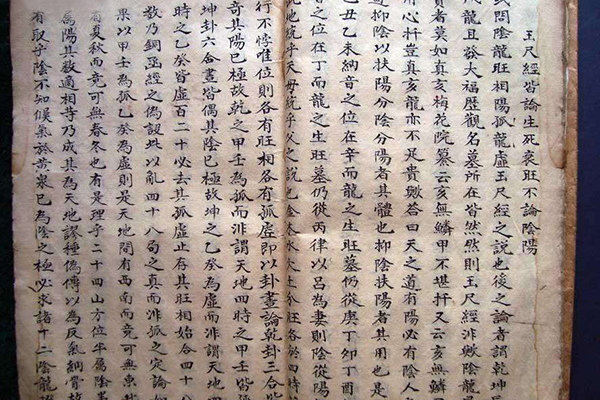 玉尺經皆論生死衰旺不論陰陽
或問陰龍旺相陽孤龍虛玉尺經之說也後之論者謂乾坤
龍且發大福歷觀名墓所在皆然然則玉尺經非歟陰龍
貴者莫如真亥梅花院纂云亥無鱗甲不堪扦又云亥無鱗
心扦豈真亥龍亦不足貴歟答曰天之道有陽必有陰人之
道抑陰以扶陽分陰分陽者其體也抑陰扶陽者其用也是
己丑乙未納音之位在辛而龍之生旺墓仍從庚丁卯丁酉
音之位在丁而龍之生旺墓仍從丙律以呂為妻則陰從陽
地統乎天母統乎父之說也金木水火土各旺各於四時
行不悖惟位則各有旺相各有孤虛即以卦畫論乾卦三合皆
奇其陽已極故乾之甲壬為孤而非謂天地四時之甲壬皆孤
坤卦六合畫皆偶其陰已極故坤之乙癸為虛而非謂天地四
時之乙癸皆虛百二十必去其孤虛止存其旺相始合四十八
數乃銅函經之偽說以亂四十八局之真而非孤之定論如
果以甲壬為孤乙癸為虛則是天地間有西南而竟可無東北
有夏秋而竟可無春冬也有是理乎二十四山方位半屬陰半
為陽其數適相等乃成其為天地謬種偽傳以為反氣納骨故
有取乎陰不知候氣於黃泉已為陰之極必求諸十二陰龍